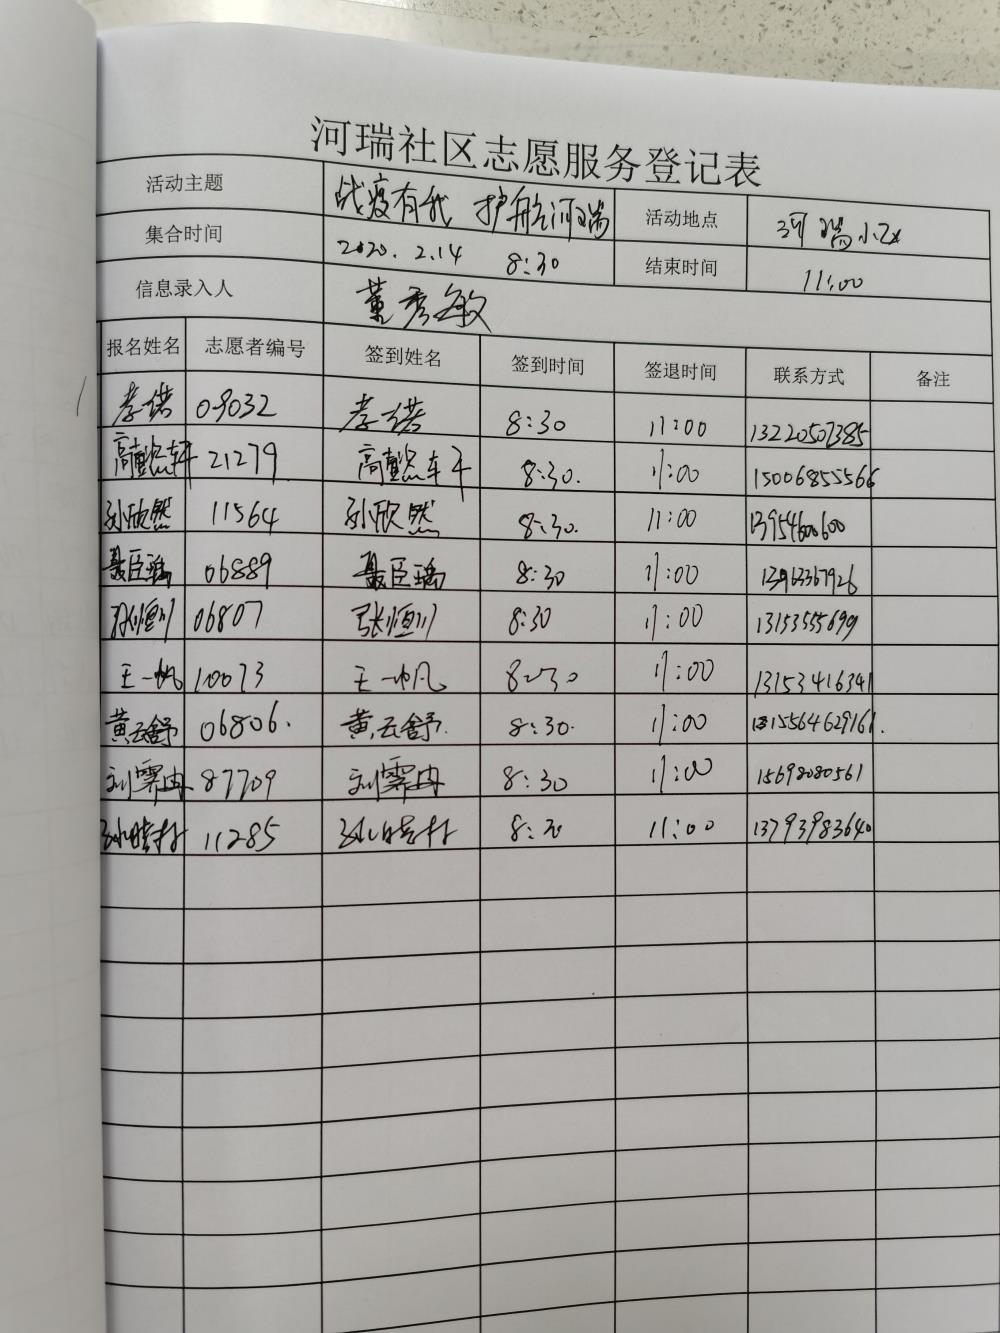 河瑞社区志愿服务登记表
活动主题 战疫有我 护航河瑞 活动地点 河瑞小区
集合时间 2020.2.14 8:30 结束时间 11:00
信息录入人 董秀敏
报名姓名 志愿者编号 签到姓名 签到时间 签退时间 联系方式 备注
李诺 09032 李诺 8:30 11:00 13220507385
高懿轩 21279 高懿轩 8:30. 11:00 15006855566
孙欣然 11564 孙欣然 8:30. 11:00 13954600600
聂臣瑀 06889 聂臣瑀 8:30 11:00 13963367926
张恒川 06807 张恒川 8:30 11:00 13153555699
王一帆 10073 王一帆 8:30 11:00 13153416341
黄云舒 06806. 黄云舒. 8:30. 11:00 15564629161.
刘霁冉 87709 刘霁冉 8:30 11:00 15698080561
11285 8:30 11:00 13793983640